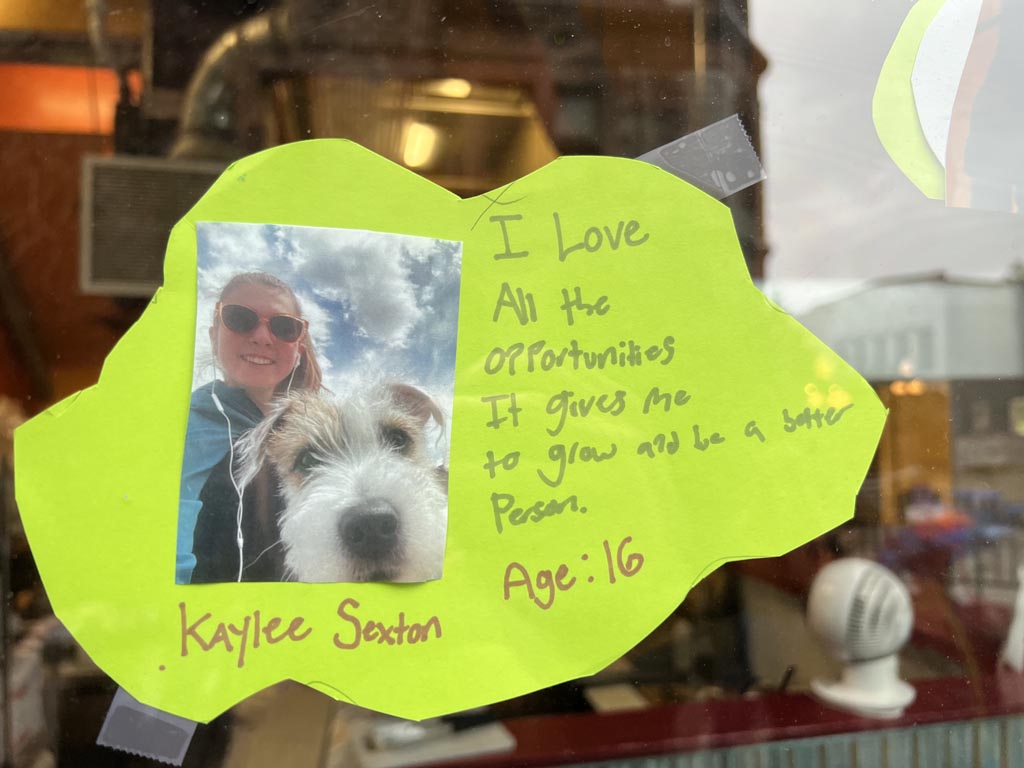 I Love
All the
opportunities
It gives me
to grow and be a better
Person.
Age: 16
Kaylee Sexton